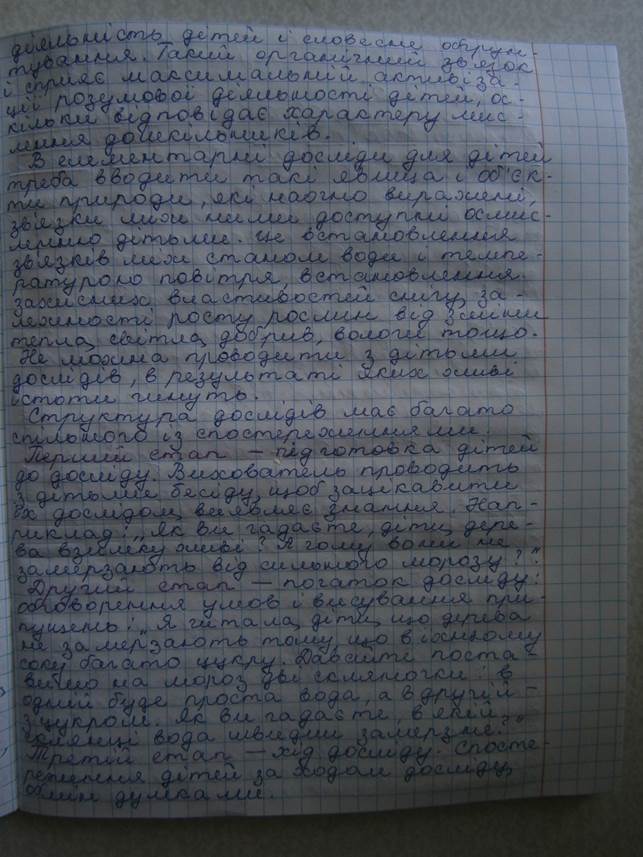 діяльність дітей і словесне обґрун-
тування. Такий органічний зв'язок
і сприяє максимальній активіза-
ції розумової діяльності дітей, ос-
кільки відповідає характеру мис-
лення дошкільників.
В елементарні досліди для дітей
треба вводити такі явища і об'єк-
ти природи, які наочно виражені,
зв'язки між ними доступні осмис-
ленню дітьми. Це встановлення
зв'язків між станом води і темпе-
ратурою повітря, встановлення
захисних властивостей снігу, за-
лежності росту рослин від зміни
тепла, світла, добрив, вологи тощо.
Не можна проводити з дітьми
дослідів, в результаті яких живі
істоти гинуть.
Структура дослідів має багато
спільного із спостереженнями.
Перший етап – підготовка дітей
до досліду. Вихователь проводить
з дітьми бесіду, щоб зацікавити
їх дослідом, виявляє знання. Нап-
риклад: „Як ви гадаєте, діти, дере-
ва взимку живі? Я чому вони не
замерзають від сильного морозу?".
Другий етап – початок досліду:
обговорення умов і висування при-
пущень: „Я читала, діти, що дерева
не замерзають тому, що в їхньому
соку багато цукру. Давайте поста-
вимо на мороз дві скляночки: в
одній буде проста вода, а в другій –
з цукром. Як ви гадаєте, в якій
склянці вода швидше замерзне?"
Третій етап – хід досліду. Спосте-
реження дітей за ходом досліду,
обмін думками.